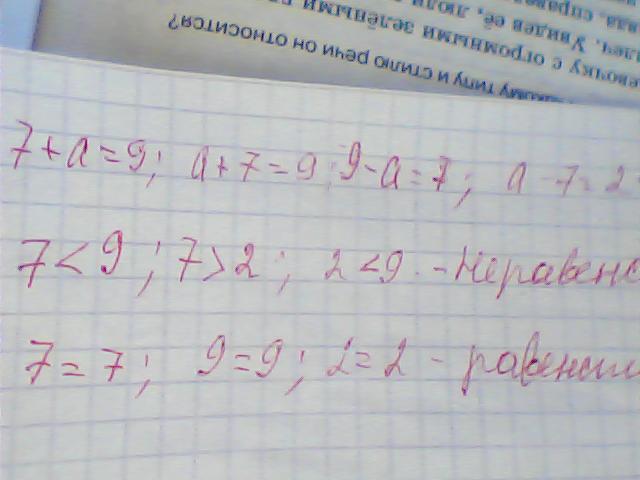 вда, справед
длеч. Увидев её, люди
евочку с огромными зелёными гл
какому типу и стилю речи он относится?
7+a=9; a+7=9; 9-a=7; a-7=2
7<9; 7>2; 2<9 - Неравенс
7=7; 9=9; 2=2 - равенст